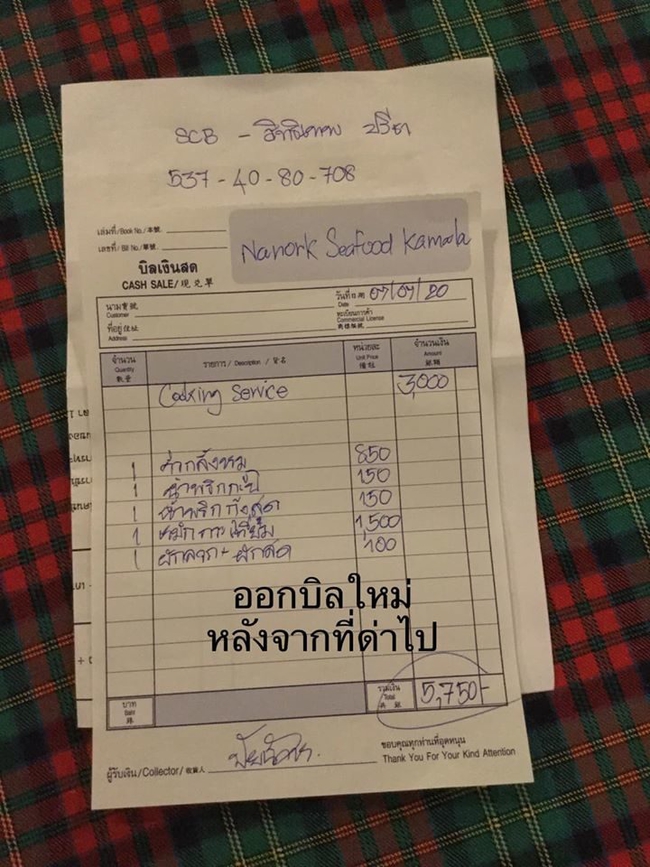 SCB -
537-40-80-708
เล่มที่/Book No./本號
เลขที่/Bill No./單號
Nanork Seafood Kamala
บิลเงินสด
CASH SALE/现兑單
วันที่日期 07/07/20
Date
นาม寶號
Customer
ทะเบียนการค้า
Commercial License
商標驗號
ที่อยู่住址
Address
จำนวน รายการ / Description / 貨名 หน่วยละ จำนวนเงิน
Quantity Unit Price Amount
數量 價粗 銀額
Cooking Service 3,000
1 850
1 น้ำพริกกะปิ 150
1 น้ำพริกกุ้งสด 150
1 1,500
1 ผักลวก + ผักสด 100
ออกบิลใหม่
หลังจากที่ด่าไป
บาท
Baht
銖
รวมเงิน
Total
共銀
5,750-
ผู้รับเงิน/Collector/收銀人
ขอบคุณทุกท่านที่อุดหนุน
Thank You For Your Kind Attention